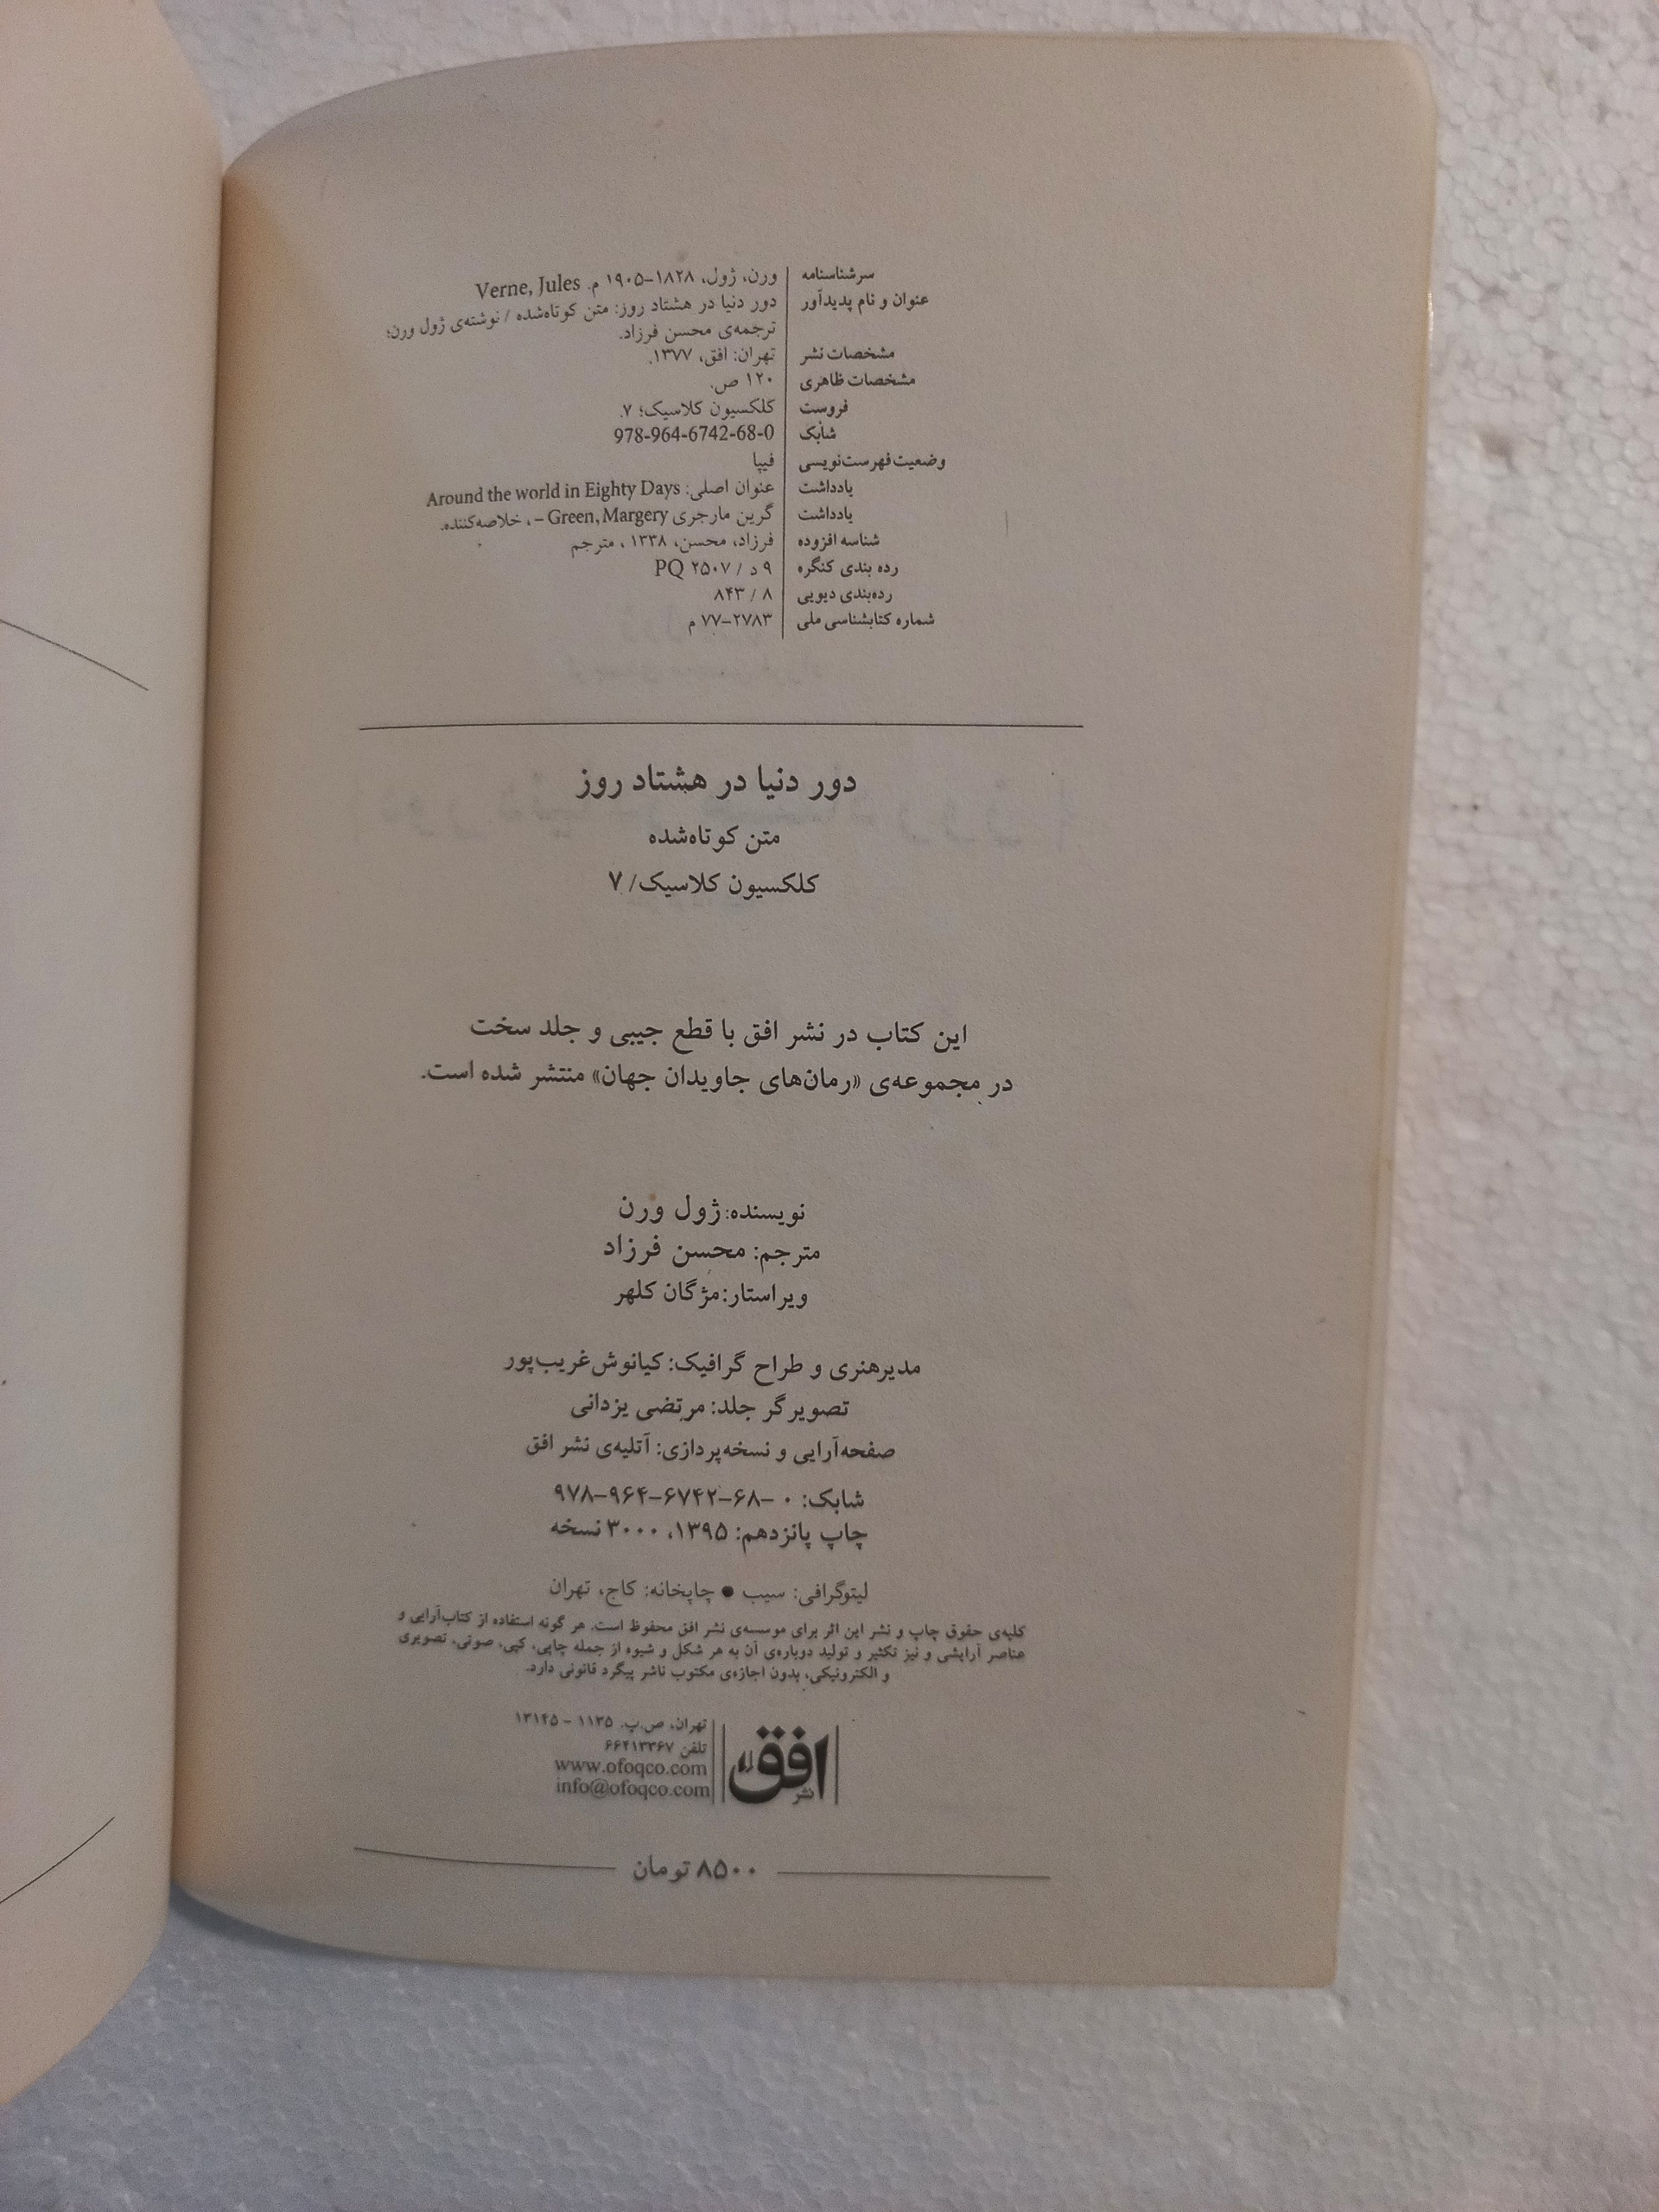 سرشناسنامه ورن، ژول، ۱۸۲۸-۱۹۰۵ م. Verne, Jules
عنوان و نام پدیدآور دور دنیا در هشتاد روز: متن کوتاه‌شده / نوشته‌ی ژول ورن؛
ترجمه‌ی محسن فرزاد.
مشخصات نشر تهران: افق، ۱۳۷۷.
مشخصات ظاهری ۱۲۰ ص.
فروست کلکسیون کلاسیک؛ ۷.
شابک 978-964-6742-68-0
وضعیت فهرست‌نویسی فیپا
یادداشت عنوان اصلی: Around the world in Eighty Days
یادداشت گرین مارجری Green, Margery –، خلاصه‌کننده.
شناسه افزوده فرزاد، محسن، ۱۳۳۸ ، مترجم
رده بندی کنگره ۹ د / ۲۵۰۷ PQ
رده‌بندی دیویی ۸ / ۸۴۳
شماره کتابشناسی ملی ۲۷۸۳-۷۷ م
دور دنیا در هشتاد روز
متن کوتاه‌شده
کلکسیون کلاسیک/ ۷
این کتاب در نشر افق با قطع جیبی و جلد سخت
در مجموعه‌ی «رمان‌های جاویدان جهان» منتشر شده است.
نویسنده: ژول ورن
مترجم: محسن فرزاد
ویراستار: مژگان کلهر
مدیرهنری و طراح گرافیک: کیانوش غریب‌پور
تصویرگر جلد: مرتضی یزدانی
صفحه‌آرایی و نسخه‌پردازی: آتلیه‌ی نشر افق
شابک: ۰ -۶۸-۶۷۴۲-۹۶۴-۹۷۸
چاپ پانزدهم: ۱۳۹۵، ۳۰۰۰ نسخه
لیتوگرافی: سیب ● چاپخانه: کاج، تهران
کلیه‌ی حقوق چاپ و نشر این اثر برای موسسه‌ی نشر افق محفوظ است. هر گونه استفاده از کتاب‌آرایی و
عناصر آرایشی و نیز تکثیر و تولید دوباره‌ی آن به هر شکل و شیوه از جمله چاپی، کپی، صوتی، تصویری
و الکترونیکی، بدون اجازه‌ی مکتوب ناشر پیگرد قانونی دارد.
نشر افق
تهران، ص.پ. ۱۱۳۵ - ۱۳۱۴۵
تلفن ۶۶۴۱۳۳۶۷
www.ofoqco.com
info@ofoqco.com
۸۵۰۰ تومان